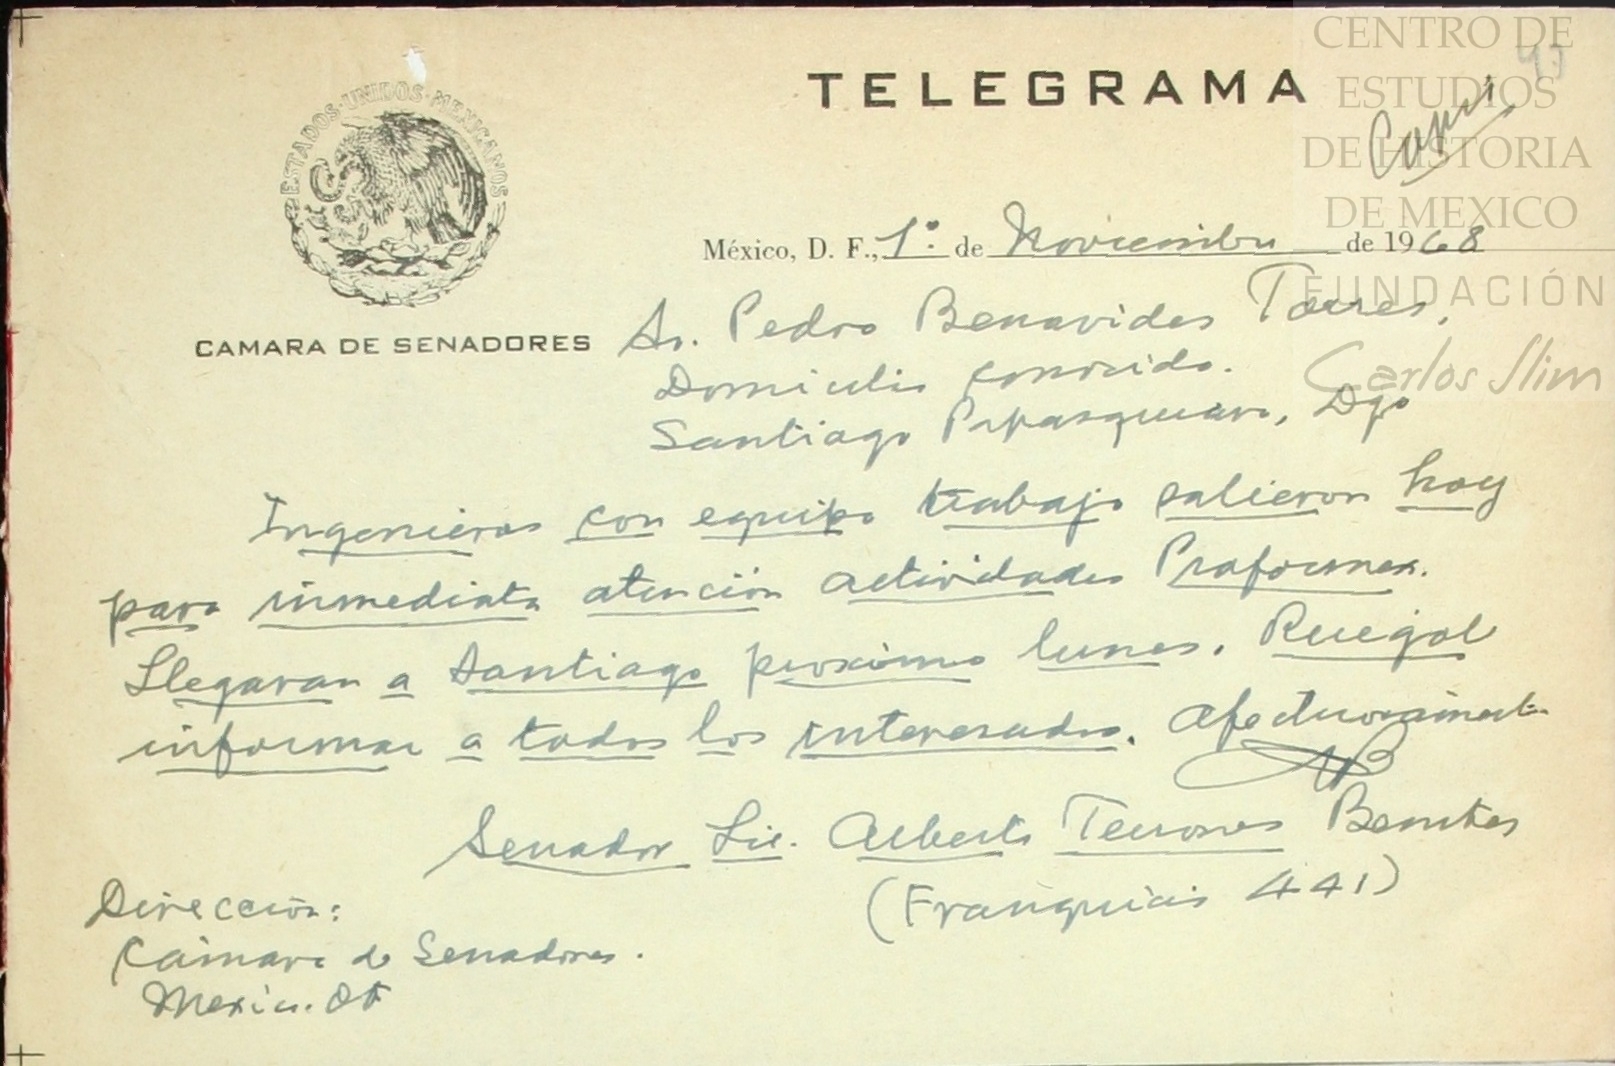 CENTRO DE
ESTUDIOS
DE HISTORIA
DE MEXICO
FUNDACIÓN
Carlos Slim
TELEGRAMA
ESTADOS·UNIDOS·MEXICANOS
CAMARA DE SENADORES
México, D. F., 1º. de Noviembre de 1968
Sr. Pedro Benavides Torres,
Domicilio conocido.
Santiago Papasquiaro, Dgo
Ingenieros con equipo trabajo salieron hoy
para inmediata atención actividades Proformex.
Llegaran a Santiago proximo lunes. Ruegol
informar a todos los interesados. Afectuosamente
Senador Lic. Alberto Terrones Benitez
(Franquicia 441)
Dirección:
Cámara de Senadores.
Mexico. DF